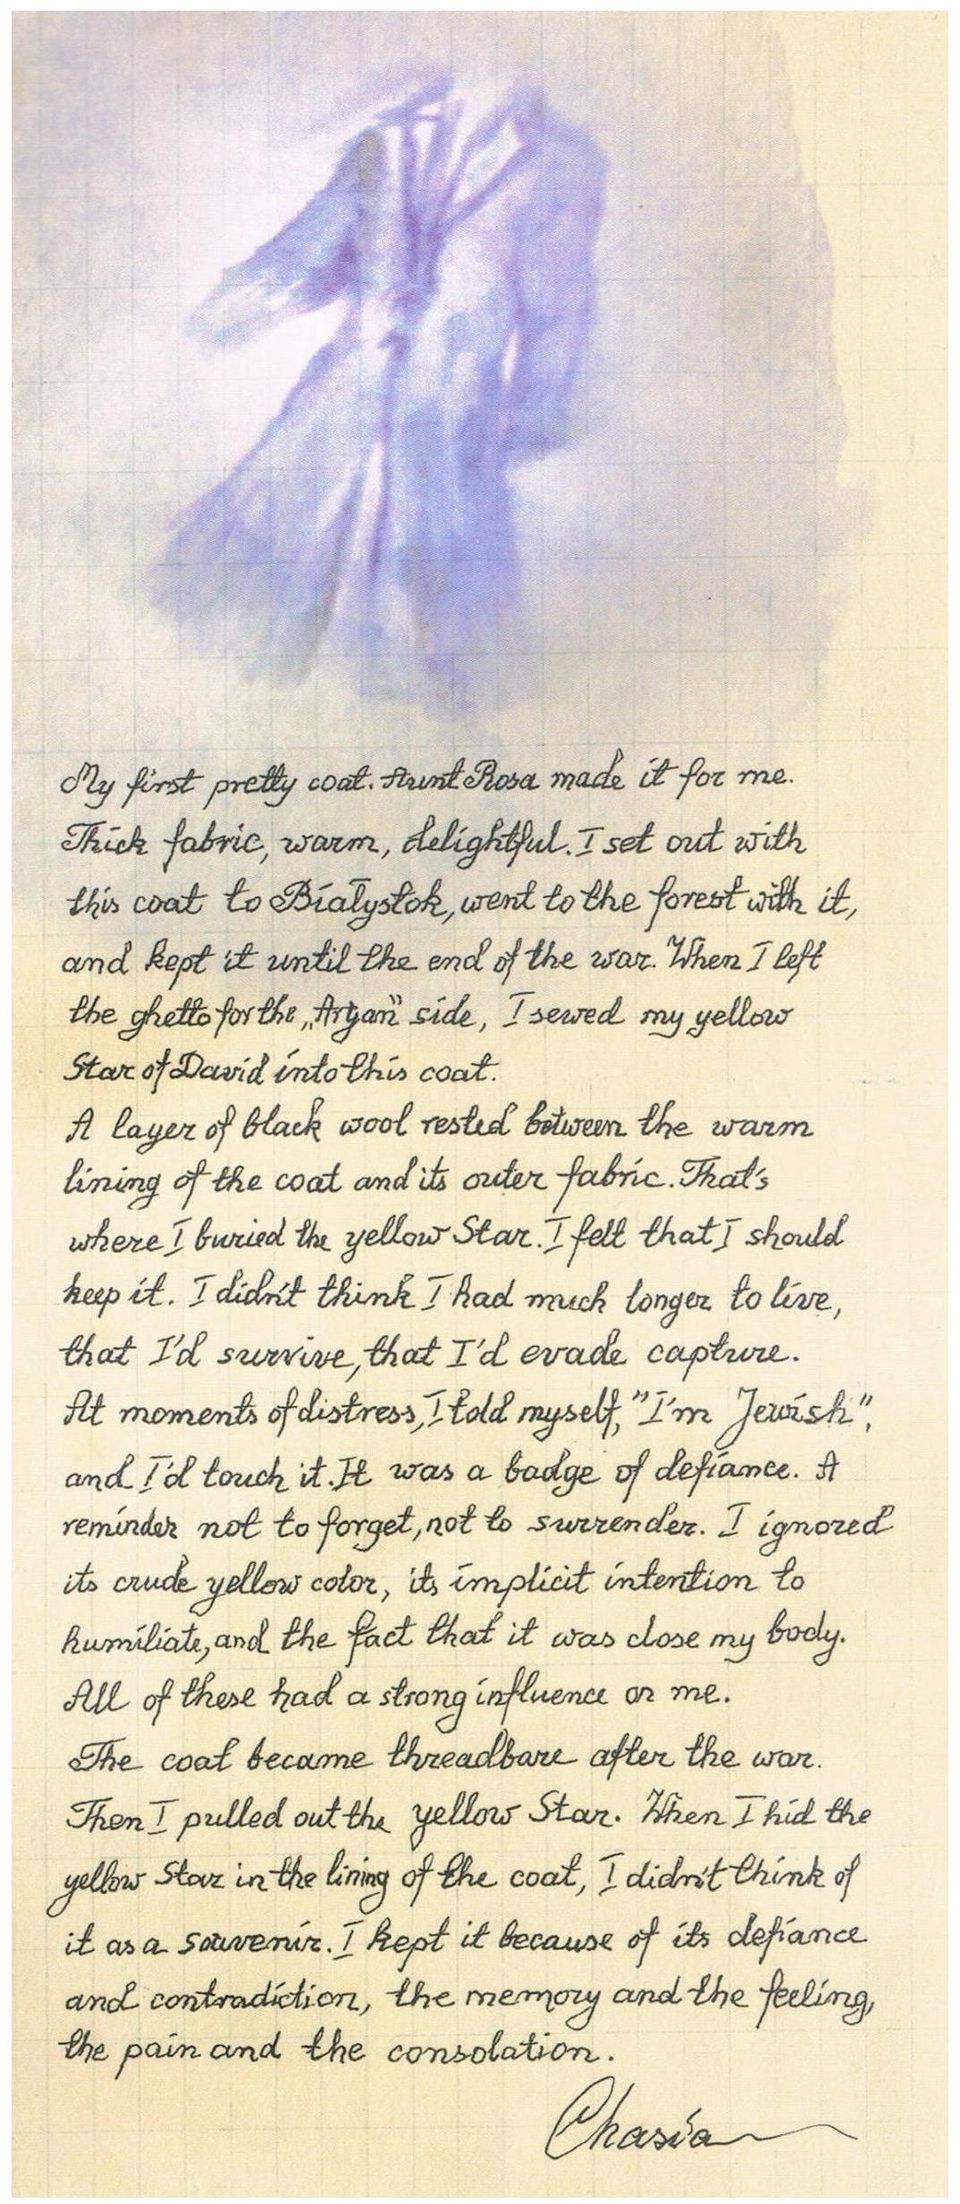 My first pretty coat. Aunt Rosa made it for me.
Thick fabric, warm, delightful. I set out with
this coat to Białystok, went to the forest with it,
and kept it until the end of the war. When I left
the ghetto for the „Aryan” side, I sewed my yellow
Star of David into this coat.
A layer of black wool rested between the warm
lining of the coat and its outer fabric. That's
where I buried the yellow Star. I felt that I should
keep it. I didn't think I had much longer to live,
that I'd survive, that I'd evade capture.
At moments of distress, I told myself, "I'm Jewish",
and I'd touch it. It was a badge of defiance. A
reminder not to forget, not to surrender. I ignored
its crude yellow color, its implicit intention to
humiliate, and the fact that it was close my body.
All of these had a strong influence on me.
The coat became threadbare after the war.
Then I pulled out the yellow Star. When I hid the
yellow Star in the lining of the coat, I didn't think of
it as a souvenir. I kept it because of its defiance
and contradiction, the memory and the feeling,
the pain and the consolation.
Chasia